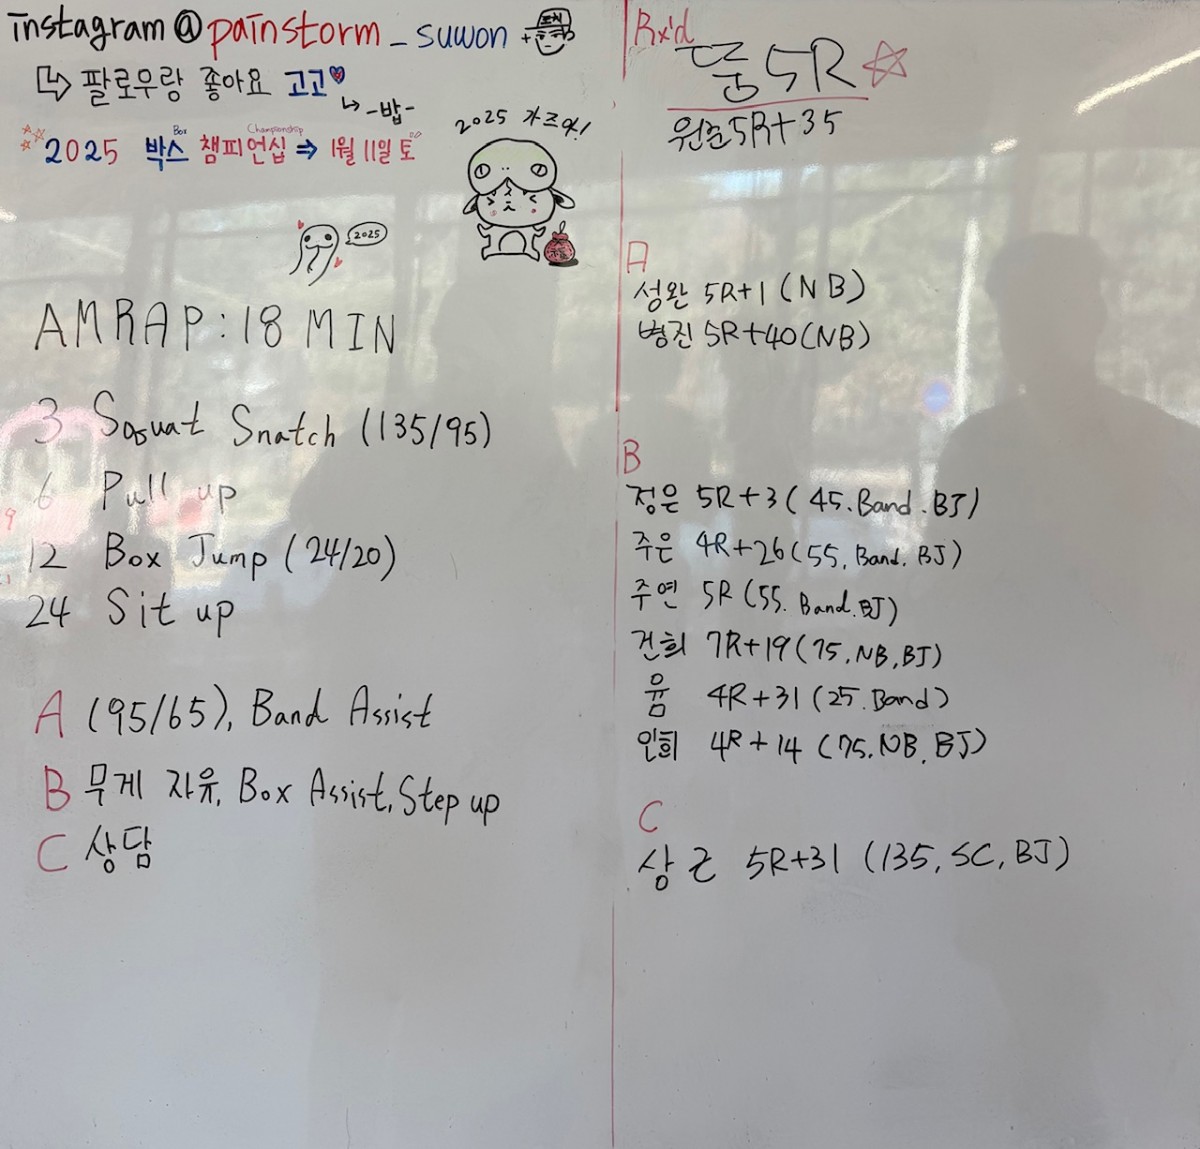 instagram @painstorm_suwon
팔로우랑 좋아요 고고
-밥-
Box Championship
2025 박스 챔피언십 ⇒ 1월 11일 토
2025 가즈아!
2025
AMRAP : 18 MIN
3 Squat Snatch (135/95)
6 Pull up
12 Box Jump (24/20)
24 Sit up
A (95/65), Band Assist
B 무게 자유, Box Assist, Step up
C 상담
Rx'd
뚬 5R
원준 5R+35
A
성완 5R+1 (NB)
병진 5R+40 (NB)
B
정은 5R+3 (45. Band. BJ)
주은 4R+26 (55, Band, BJ)
주연 5R (55. Band. BJ)
건희 7R+19 (75, NB, BJ)
윰 4R+31 (25. Band)
인희 4R+14 (75. NB. BJ)
C
상근 5R+31 (135, SC, BJ)